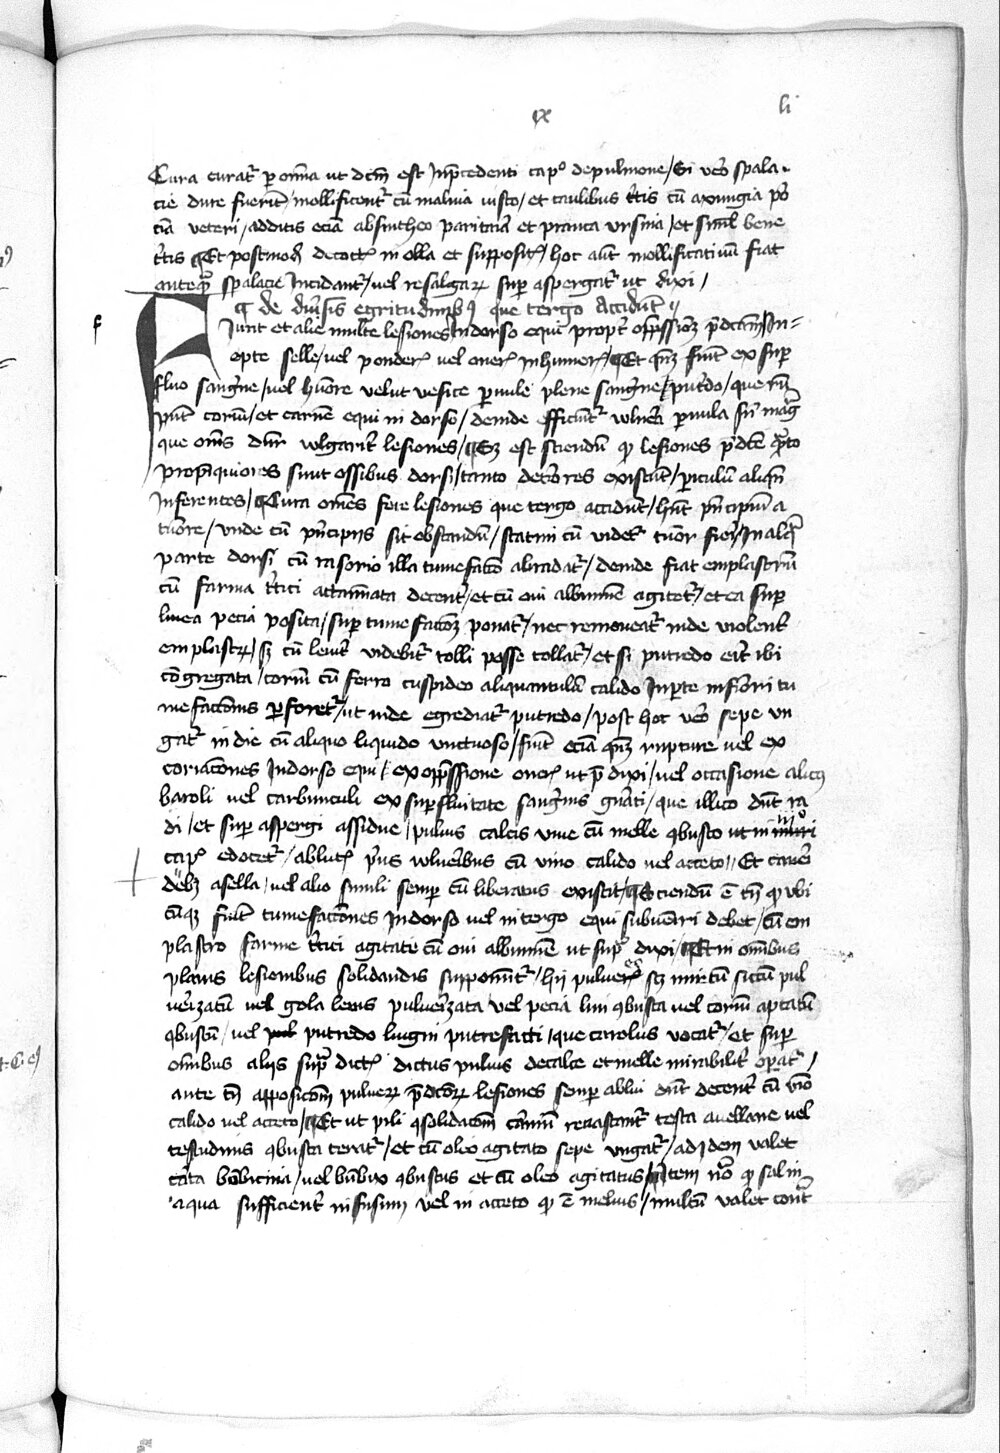 ix
li
Cura curat᷑ p om̅ia ut dc̅m est In p̅cedenti cap° de pulmone / Si ve͛o spala
cie dure fuerit̅ / mollificent᷑ cu̅ malvia iusto / et caulibus t͛tis cu̅ axungia po͛
cia̅ veteri / additis ecia̅ absintheo paritaria et pranca ursina / et simul bene
t͛tis Et postmod̅ decoct in olla et supposit / hoc aut̅ mollificativu̅ fiat
anteq̅ spalacie Incidant᷑ / vel resalgar sup aspergat᷑ ut dixi /
de diu͛sis egritudinibꝰ que tergo Accidu̅t
f
Fiunt et alie multe lesiones In dorso equi propt͛ opp̅ssio̅ꝫ p̅dc̅am In=
epte selle / vel ponder͛ vel oner͛ In humer͛ / Et q̅nꝫ fiu̅t ex sup
fluo sangi̅ne / vel hu̅ore velut vesice p̲arvule plene sangi̅ne / put͛do / que ru̅
pu̅t coriu̅ / et carne̅ equi in dorso / deinde efficiu̅t᷑ vulne͛a p̲arvula sn̅ mag̅
que om̅s dn̅r vulgarit͛ lesiones / Et est sciendu̅ ꝙ lesiones p̅dc̅e q̅nto
propi̅quiores sunt ossibus dorsi / tanto det͛iores existu̅t / p̲iculu̅ aliqn̅
Inferentes / Cura om̅es fere lesiones que tergo accidu̅t / hn̅t p̅ncipiu̅ a
tu̅ore / unde cu̅ p̅ncipiis sit obstandu̅ / statim cu̅ videt᷑ tu̅or fie͛i In al̅q
parte dorsi cu̅ rasorio illa tumefacto̅ abradat᷑ / deinde fiat emplastru̅
cu̅ farina t͛tici attam̅ata decent͛ / et cu̅ oui albumi̅e agitet᷑ / et ea sup
linea pecia posita / sup tumefacco̅ꝫ ponat᷑ / nec removeat᷑ inde violent͛
emplastr / sꝫ cu̅ levit͛ videbit᷑ tolli posse tollat᷑ / et si putredo erit ibi
co̅gregata / coriu̅ cu̅ ferro cuspideo aliquantulu̅ calido In p̲te infiori tu
mefacc̅onis p̲foret᷑ / ut inde egrediat᷑ putredo / post hoc ve͛o sepe un
gat᷑ in die cu̅ aliquo liquido unctuoso / fiu̅t ecia̅ q̅nꝫ rupture vel ex
coriac̅ones In dorso equi / ex opp̅ssione oner͛ ut p̅ dixi / vel occasione alicꝰ
baroli vel carbunculi ex sup̲fluitate sangi̅nis gn̅ati / que illico dn̅t ra
di / et sup aspergi assidue / pulvis calcis vive cu̅ melle ꝯbusto ut in
cap° edocet᷑ / ablut p̅us vulne͛ibus cu̅ vino calido vel acceto // Et cave͛i
debꝫ a sella / vel alio simili semp cu̅ liberatus existit / Sciendu̅ e̅ tn̅ ꝙ ubi
cu̅qꝫ fiu̅t tumefacc̅ones In dorso vel in tergo equi subveni̅ri debet / cu̅ em
plastro farine t͛tici agitate cu̅ oui albumi̅e ut sup̅ dixi / Et in om̅ibus
planis lesionibus solidandis suppoñnt᷑ / hii pulveres scꝫ mirtu̅ siccu̅ pul
ve͛izatu̅ vel gola lenis pulve͛izata / vel pecia lini ꝯbusta vel coriu̅ aptatu̅
ꝯbustu̅ / vel putredo lingni putrefacti / que carolus vocat᷑ / et sup
omnibus aliis sup̅ dict dictus pulvis de calce et melle mirabilit͛ op̲at᷑ /
ante tn̅ apposicio̅m pulver p̅dc̅or lesiones semp ablui dn̅t decent͛ cu̅ vi̅o
calido vel acceto / Et ut pili ꝯsolidaco̅m carniu̅ renascant᷑ testa avellane vel
testudinis ꝯbusta terat᷑ / et cu̅ oleo agitato sepe ungat᷑ / ad idem valet
carta bo̅bicina / vel bu̅bix ꝯbustus et cu̅ oleo agitatus Item no͛ ꝙ sal in
aqua sufficient͛ infusum vel in acceto ꝙ e̅ melius / multu̅ valet cont᷑